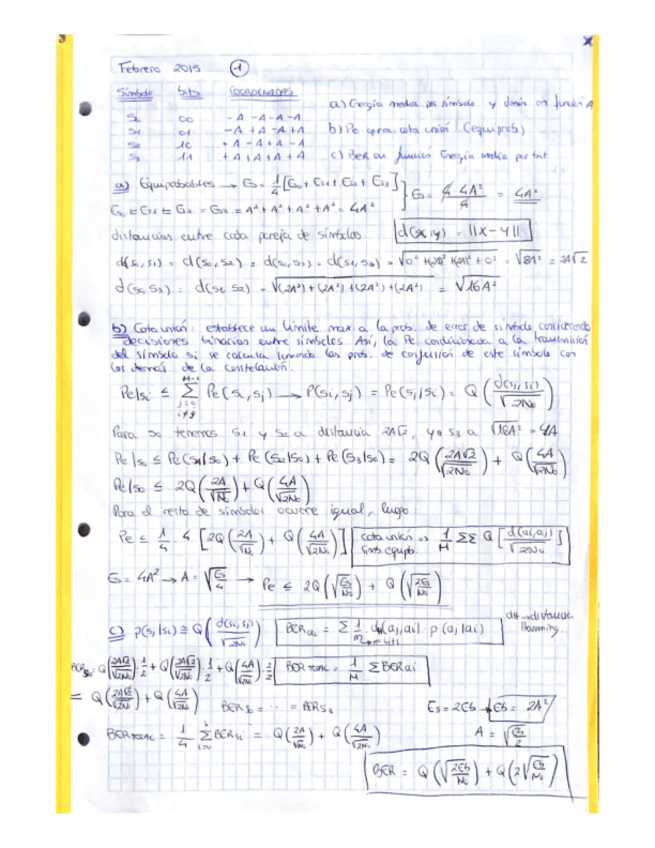 Febrero 2015 ①
Símbolo bits COORDENADAS
S0 00 -A -A -A -A
S1 01 -A +A -A +A
S2 10 +A -A +A -A
S3 11 +A +A +A +A
a) Energía media por símbolo y dmin en función A
b) Pe aprox cota unión (equiprob)
c) BER en función Energía media por bit
a) Equiprobables → Es = 1/4 [Es0 + Es1 + Es2 + Es3]
Es0 = Es1 = Es2 = Es3 = A² + A² + A² + A² = 4A²
Es = 4·4A²/4 = 4A²
distancias entre cada pareja de símbolos d(x,y) = ||x-y||
d(s0,s1) = d(s0,s2) = d(s2,s3) = d(s1,s3) = √(0² + (2A)² + (2A)² + 0²) = √8A² = 2A√2
d(s0,s3) = d(s1,s2) = √((2A²)+(2A²)+(2A²)+(2A²)) = √16A²
b) Cota unión: establece un límite max. a la prob. de error de símbolo considerando
decisiones binarias entre símbolos. Así, la Pe condicionada a la transmisión
del símbolo si se calcula sumando las prob. de confusión de este símbolo con
los demás de la constelación.
Pe/si ≤ Σ Pe(si,sj) → P(si,sj) = Pe(sj|si) = Q(d(sj,si)/√2N0)
Para s0 tenemos s1 y s2 a distancia 2A√2, y s3 a √16A² = 4A
Pe|s0 ≤ Pe(s1|s0) + Pe(s2|s0) + Pe(s3|s0) = 2Q(2A√2/√2N0) + Q(4A/√2N0)
Pe/s0 ≤ 2Q(2A/√N0) + Q(4A/√2N0)
Para el resto de símbolos ocurre igual, luego
Pe ≤ 1/4 · 4 [2Q(2A/√N0) + Q(4A/√2N0)] cota unión => 1/M ΣΣ Q[d(ai,aj)/√2N0]
símb. equipb.
Es = 4A² → A = √(Es/4) → Pe ≤ 2Q(√(Es/N0)) + Q(√(2Es/N0))
c) p(sj|si) ≅ Q(d(si,sj)/√2N0) BERai = Σ 1/m · dH(aj,ai) · p(aj|ai) dH → distancia
Hamming
BERs0 = Q(2A√2/√2N0)·1/2 + Q(2A√2/√2N0)·1/2 + Q(4A/√2N0)·2/2 BER TOTAL = 1/M Σ BERai
= Q(2A√2/√2N0) + Q(4A/√2N0) BERs0 = ·· = BERs3 Es = 2Eb → Eb = 2A²
BER TOTAL = 1/4 Σ BERsi = Q(2A/√N0) + Q(4A/√2N0) A = √(Eb/2)
BER = Q(√(2Eb/N0)) + Q(2√(Eb/N0))